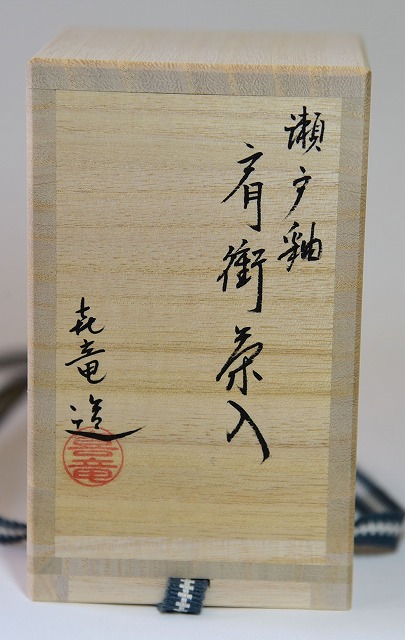 瀬戸釉
肩衝茶入
喜竜造
喜竜